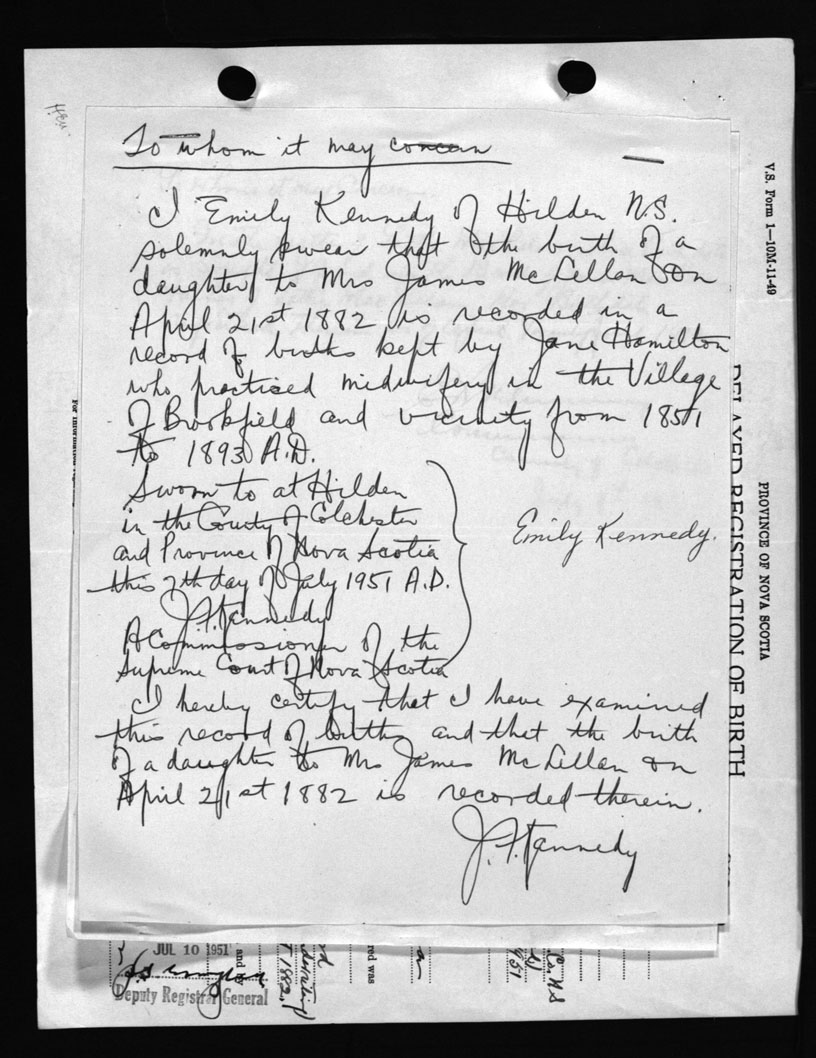 To whom it may concern
I Emily Kennedy of Hilden N.S.
solemnly swear that the birth of a
daughter to Mrs James McLellan on
April 21st 1882 is recorded in a
record of births kept by Jane Hamilton
who practised midwifery in the Village
of Brookfield and vicinity from 1851
to 1893 A.D.
Sworn to at Hilden
in the County of Colchester
and Province of Nova Scotia
this 7th day of July 1951 A.D.
J. F. Kennedy
A Commissioner of the
Supreme Court of Nova Scotia
Emily Kennedy.
I hereby certify that I have examined
this record of births and that the birth
of a daughter to Mrs James McLellan on
April 21st 1882 is recorded therein.
J. F. Kennedy
V.S. Form 1—10M-11-49
PROVINCE OF NOVA SCOTIA
DELAYED REGISTRATION OF BIRTH
For information
JUL 10 1951
Deputy Registrar General
and
red was
1882
Co. N.S.
1951